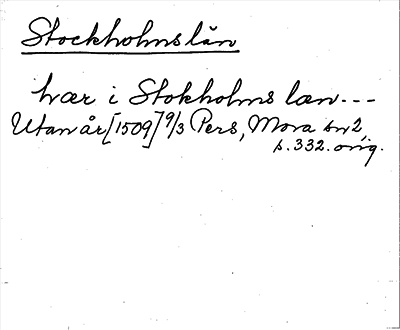 Stockholms län
hær i Stokholms læn---
Utan år [1509] 9/3 Pers, Mora br 2,
s. 332. orig.